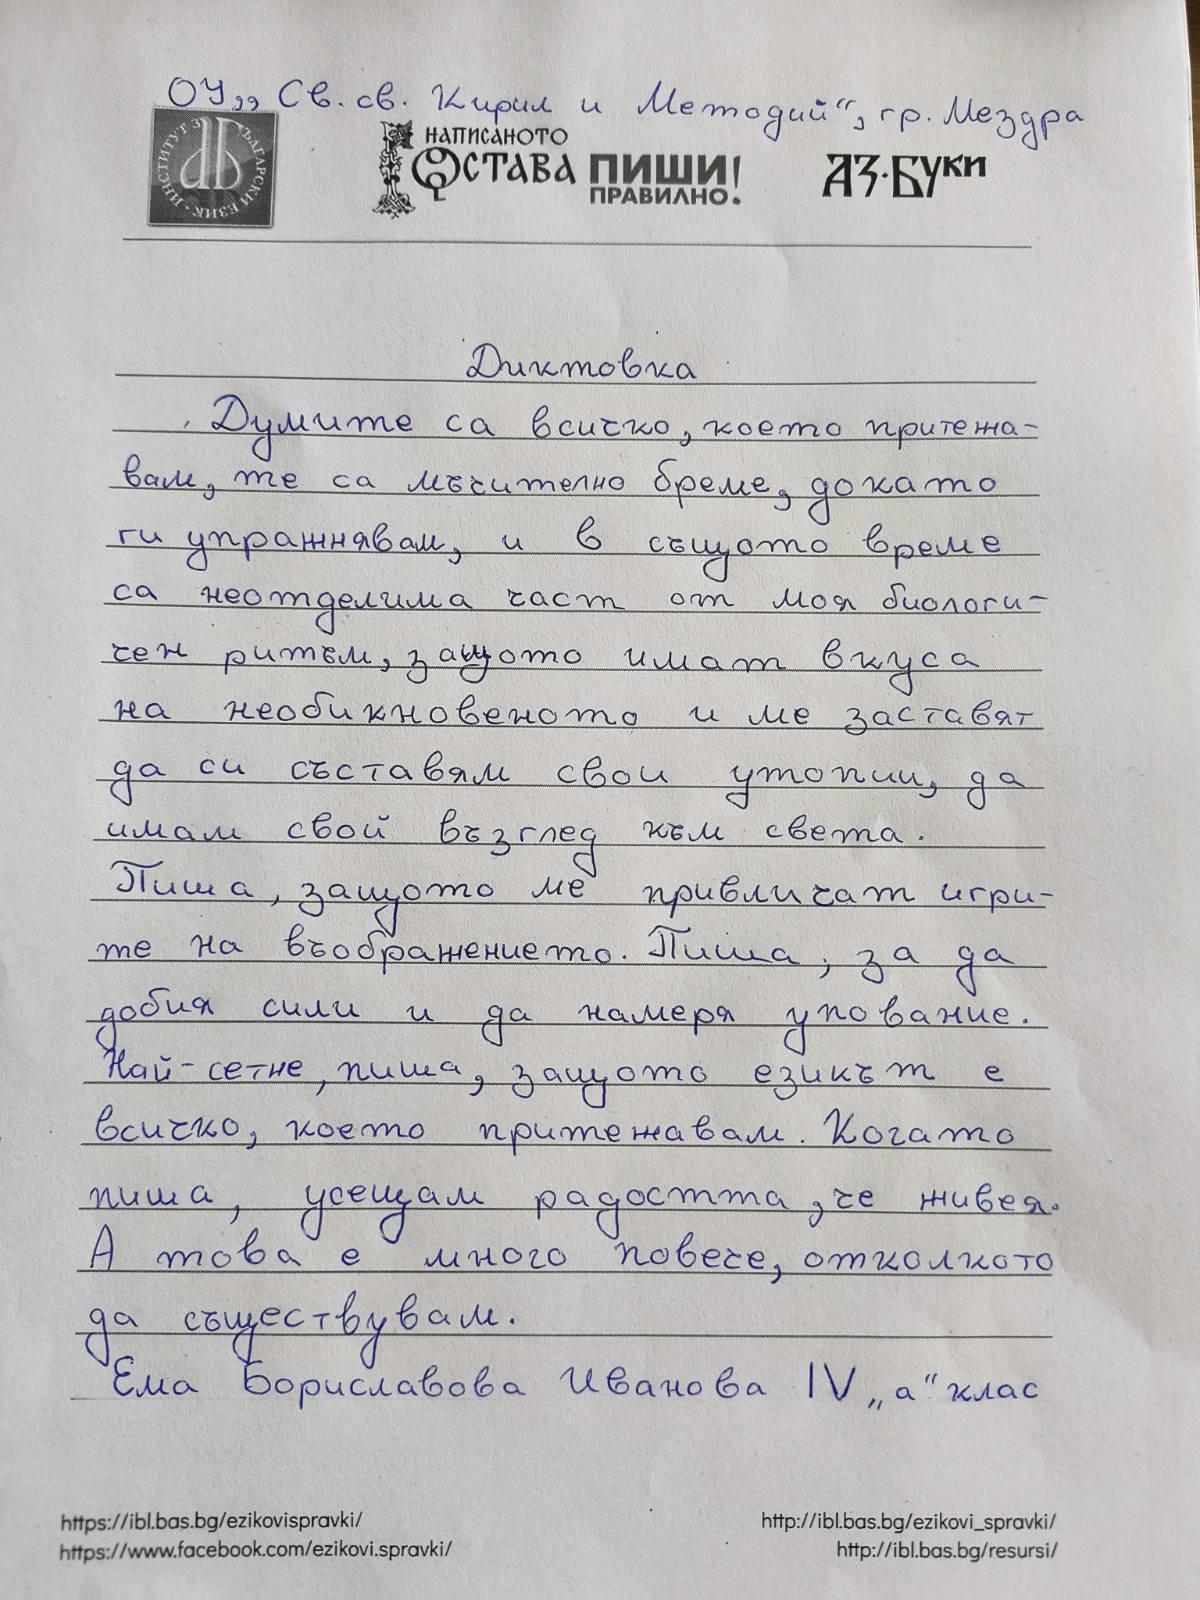 ОУ„ Св. св. Кирил и Методий“, гр. Мездра
ИНСТИТУТ ЗА БЪЛГАРСКИ ЕЗИК
НАПИСАНОТО ОСТАВА ПИШИ ПРАВИЛНО!
АЗ·БУКИ
Диктовка
Думите са всичко, което притежа-
вам, те са мъчително бреме, докато
ги упражнявам, и в същото време
са неотделима част от моя биологи-
чен ритъм, защото имат вкуса
на необикновеното и ме заставят
да си съставям свои утопии, да
имам свой възглед към света.
Пиша, защото ме привличат игри-
те на въображението. Пиша, за да
добия сили и да намеря упование.
Най-сетне, пиша, защото езикът е
всичко, което притежавам. Когато
пиша, усещам радостта, че живея.
А това е много повече, отколкото
да съществувам.
Ема Бориславова Иванова IV „а“ клас
https://ibl.bas.bg/ezikovispravki/ http://ibl.bas.bg/ezikovi_spravki/
https://www.facebook.com/ezikovi.spravki/ http://ibl.bas.bg/resursi/